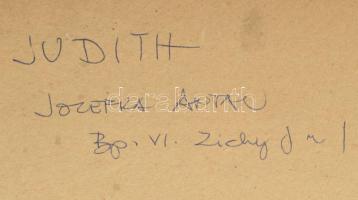 JUDITH
JOZEFKA ANTAL
Bp. VI. Zichy J u 1